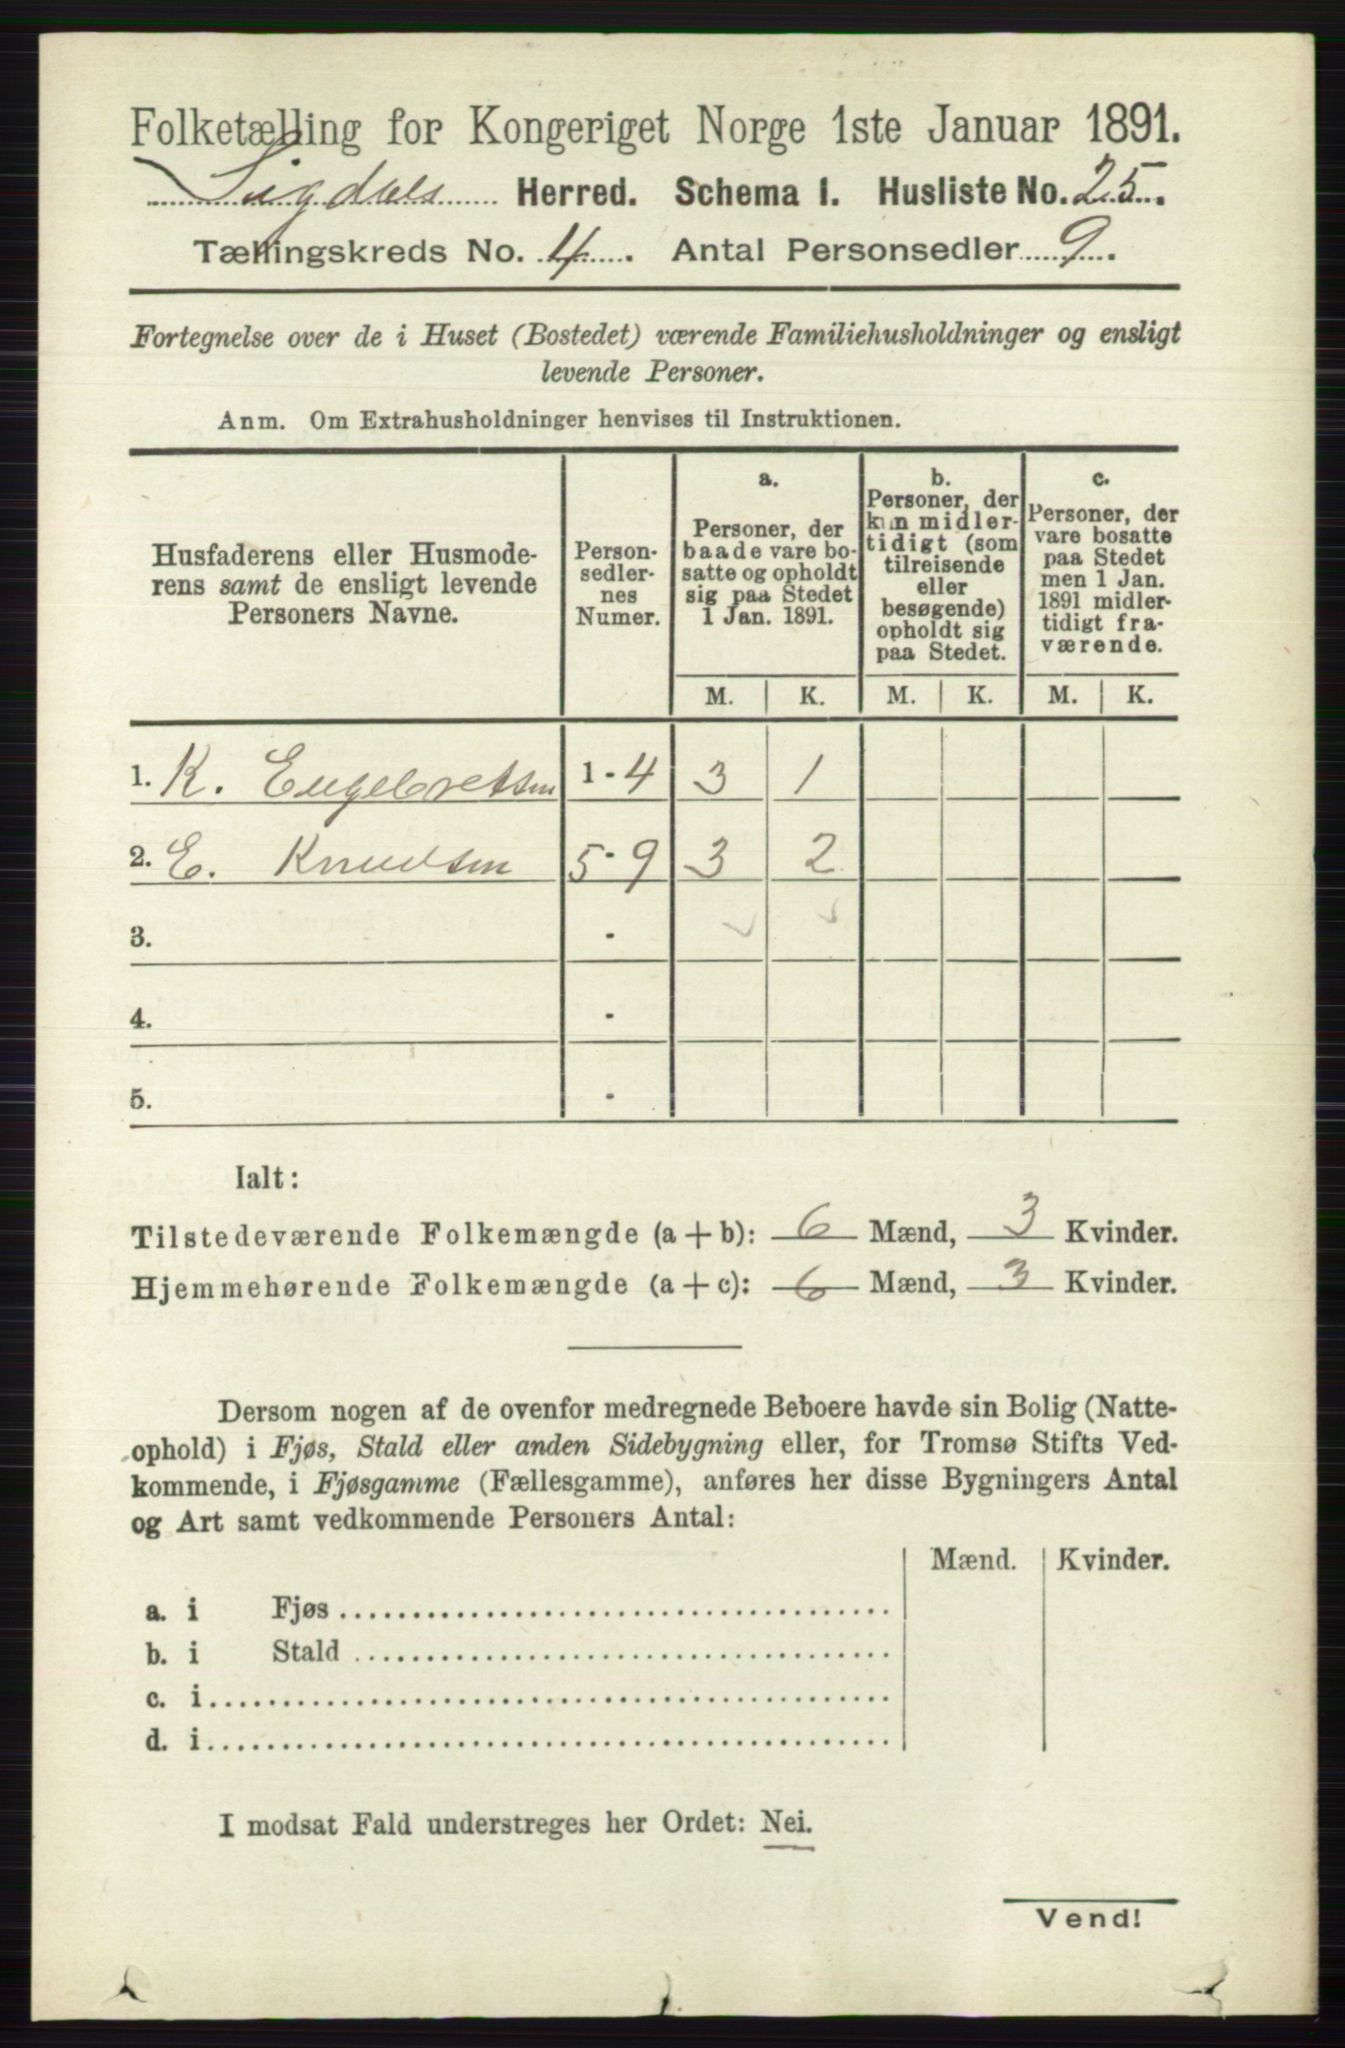 Folketælling for Kongeriget Norge 1ste Januar 1891.
Sigdals Herred. Schema I. Husliste No. 25.
Tællingskreds No. 4. Antal Personsedler 9.
Fortegnelse over de i Huset (Bostedet) værende Familiehusholdninger og ensligt
levende Personer.
Anm. Om Extrahusholdninger henvises til Instruktionen.
Husfaderens eller Husmode-
rens samt de ensligt levende
Personers Navne.
Person-
sedler-
nes
Numer.
a.
Personer, der
baade vare bo-
satte og opholdt
sig paa Stedet
1 Jan. 1891.
b.
Personer, der
kun midler-
tidigt (som
tilreisende
eller
besøgende)
opholdt sig
paa Stedet.
c.
Personer, der
vare bosatte
paa Stedet
men 1 Jan.
1891 midler-
tidigt fra-
værende.
M. K. M. K. M. K.
1. K. Engebretsen 1-4 3 1
2. E. Knudsen 5-9 3 2
3. -
4. -
5. -
Ialt:
Tilstedeværende Folkemængde (a + b): 6 Mænd, 3 Kvinder.
Hjemmehørende Folkemængde (a + c): 6 Mænd, 3 Kvinder.
Dersom nogen af de ovenfor medregnede Beboere havde sin Bolig (Natte-
ophold) i Fjøs, Stald eller anden Sidebygning eller, for Tromsø Stifts Ved-
kommende, i Fjøsgamme (Fællesgamme), anføres her disse Bygningers Antal
og Art samt vedkommende Personers Antal:
Mænd. Kvinder.
a. i Fjøs
b. i Stald
c. i
d. i
I modsat Fald understreges her Ordet: Nei.
Vend!